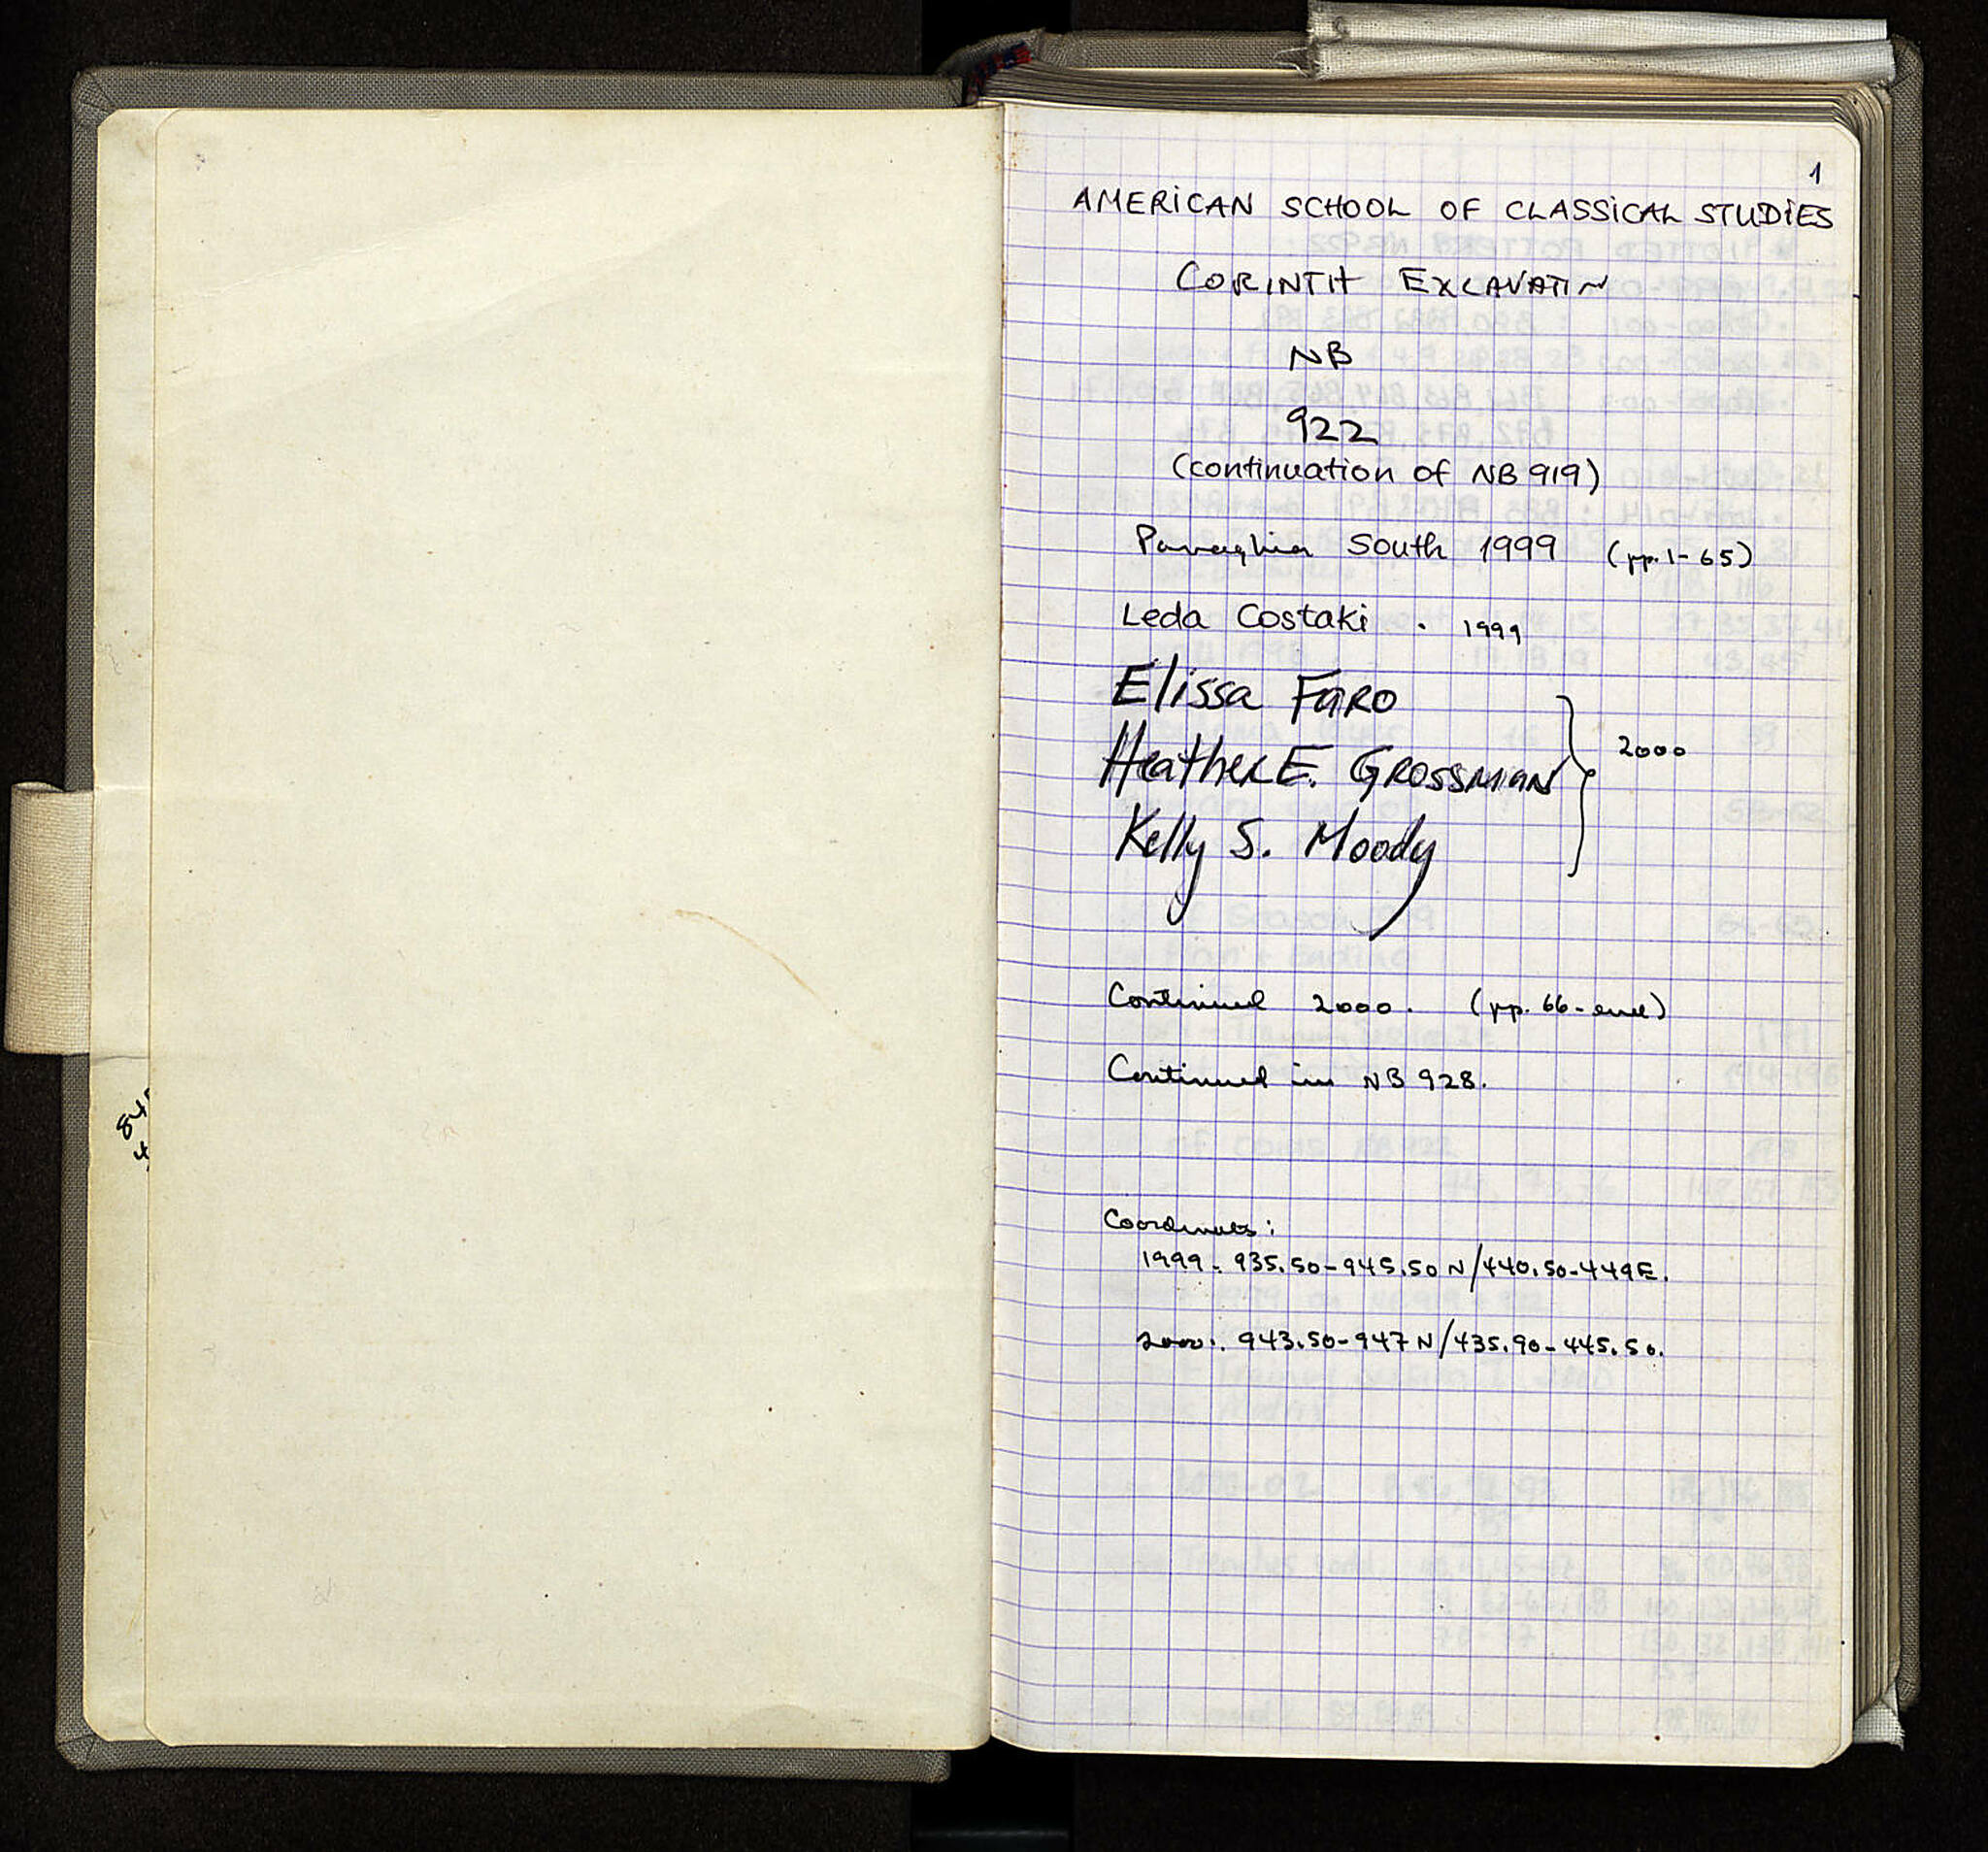 1
AMERICAN SCHOOL OF CLASSICAL STUDIES
CORINTH EXCAVATIN
NB
922
(continuation of NB 919)
Panaghia South 1999 (pp. 1-65)
Leda Costaki . 1999
Elissa Faro
Heather E. Grossman
2000
Kelly S. Moody
Continued 2000. (pp. 66-end)
Continued in NB 928.
Coordinates:
1999. 935.50-945.50 N/440.50-449E.
2000: 943.50-947 N/435.90-445.50.
84